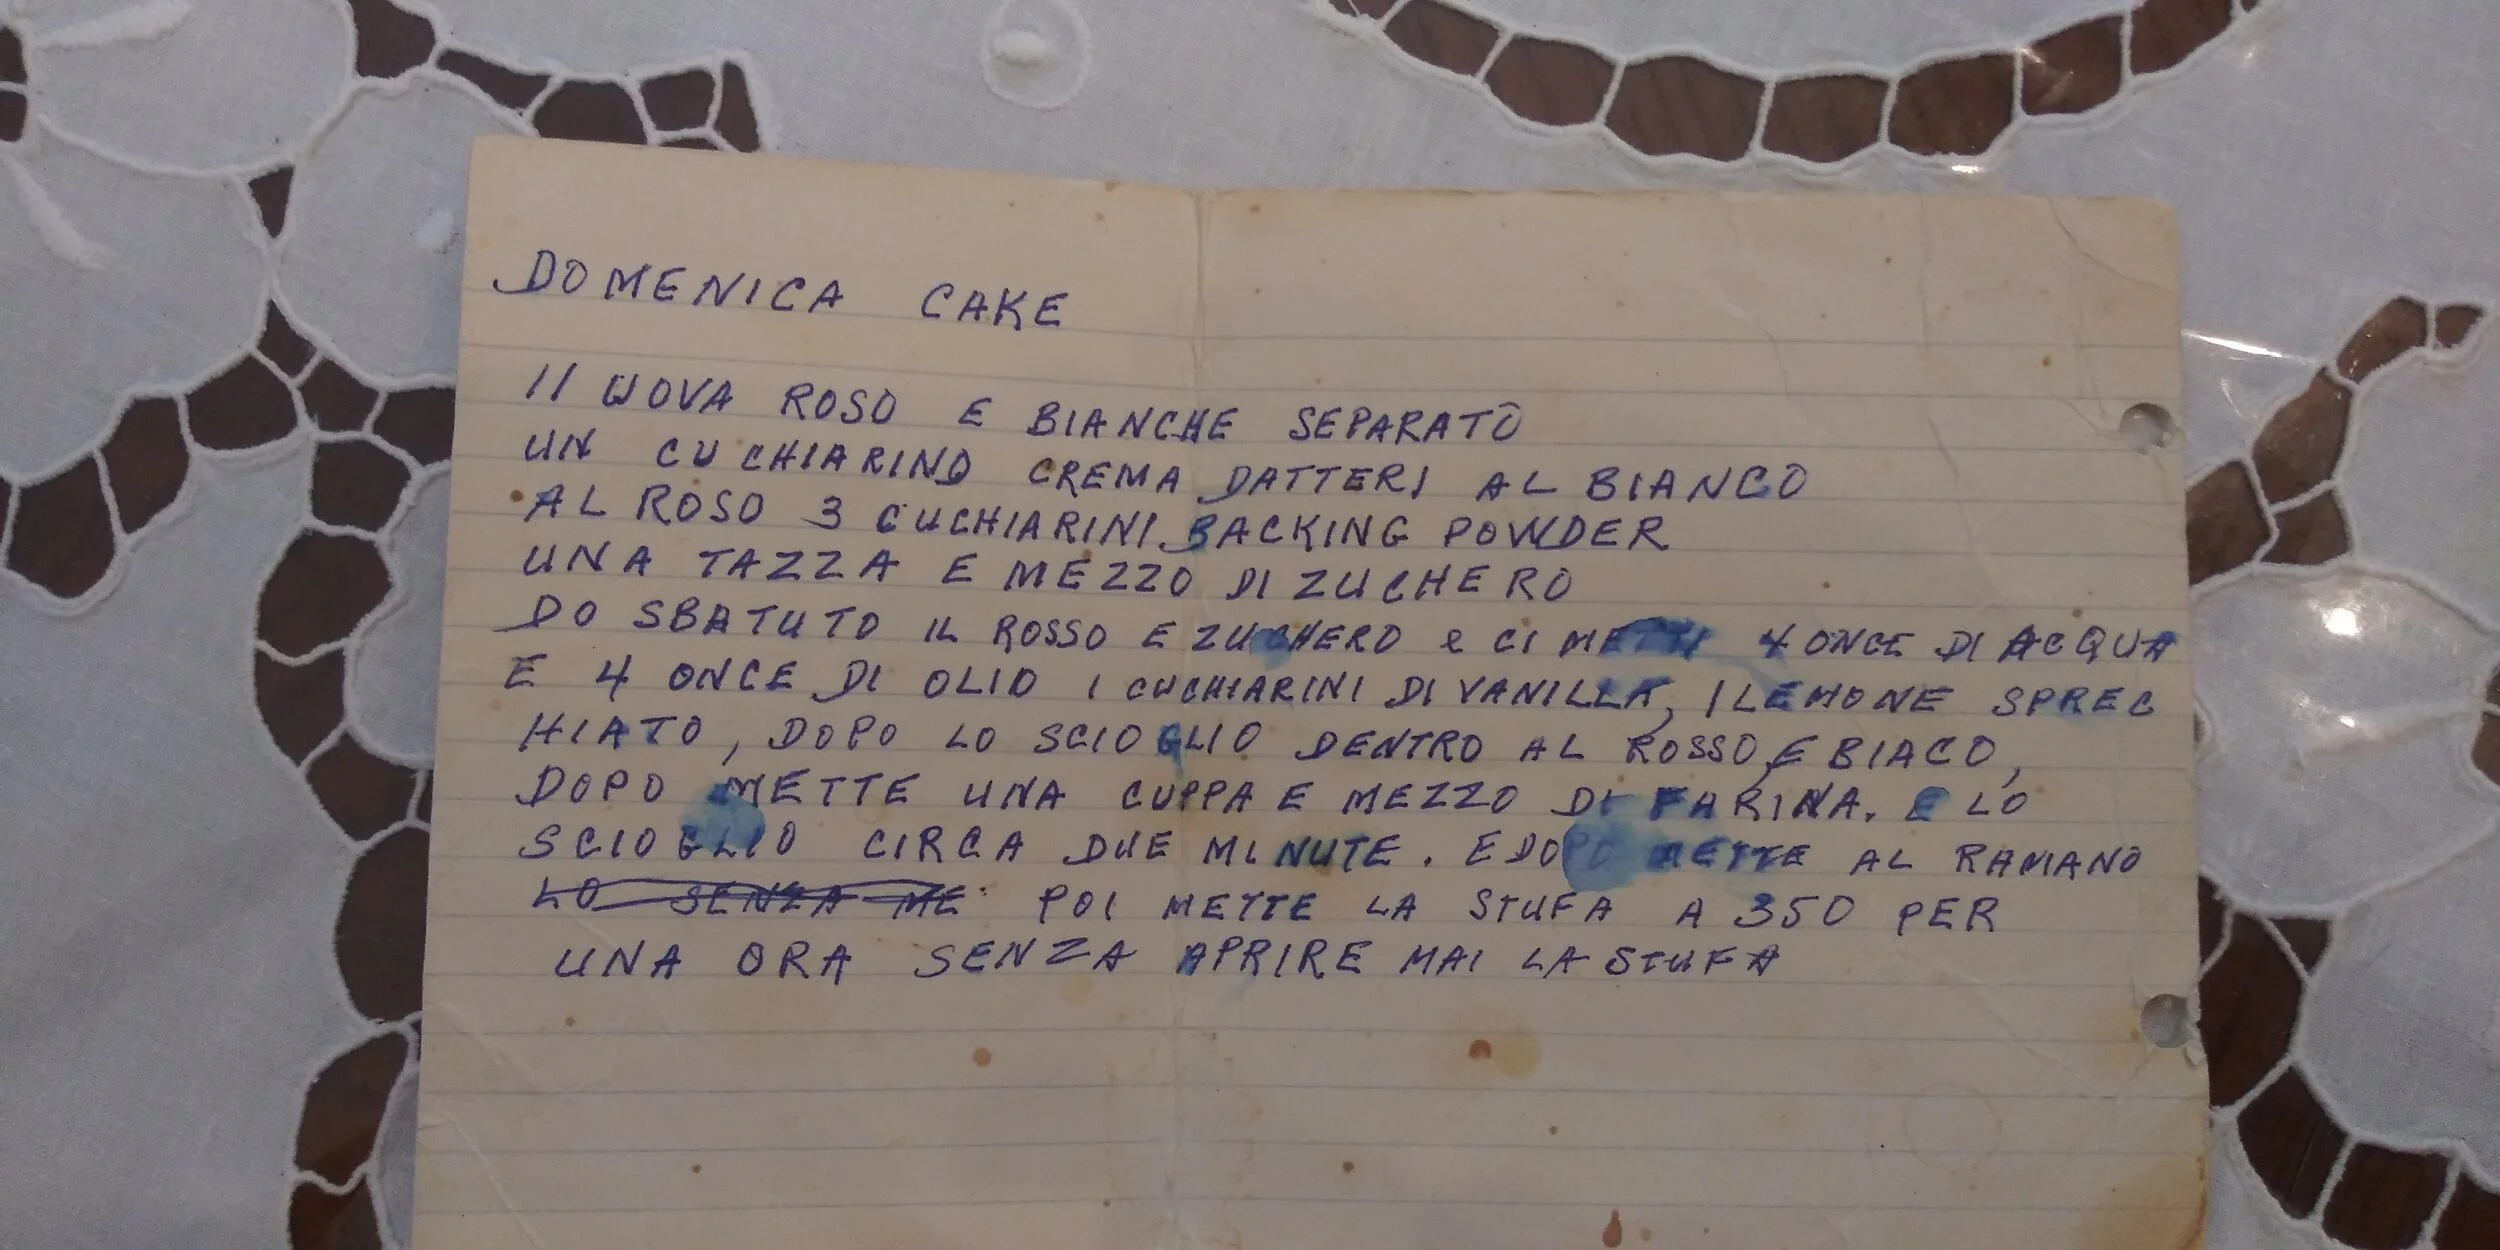 DOMENICA CAKE
11 UOVA ROSO E BIANCHE SEPARATO
UN CUCHIARINO CREMA DATTERI AL BIANCO
AL ROSO 3 CUCHIARINI BACKING POWDER
UNA TAZZA E MEZZO DI ZUCHERO
DO SBATUTO IL ROSSO E ZUCHERO e CI METTI 4 ONCE DI ACQUA
E 4 ONCE DI OLIO 1 CUCHIARINI DI VANILLA, 1 LEMONE SPREC
HIATO, DOPO LO SCIOGLIO DENTRO AL ROSSO, E BIACO,
DOPO METTE UNA CUPPA E MEZZO DI FARINA. E LO
SCIOGLIO CIRCA DUE MINUTE. E DOPO METTE AL RAMANO
LO SENZA ME POI METTE LA STUFA A 350 PER
UNA ORA SENZA APRIRE MAI LA STUFA